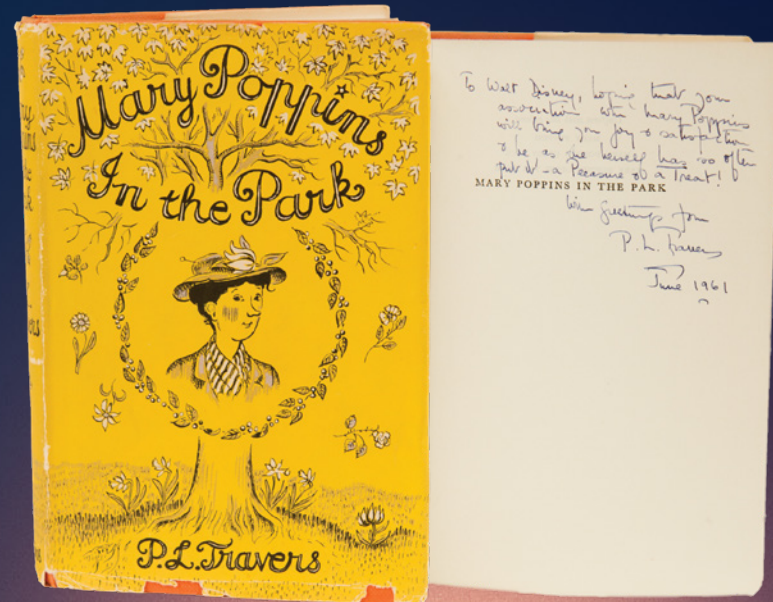 Mary Poppins
In the Park
P.L. Travers
To Walt Disney, hoping that your
association with Mary Poppins
will bring you joy & satisfaction
& be as she herself has so often
put it - a Pleasure & a Treat!
MARY POPPINS IN THE PARK
With greetings from
P. L. Travers
June 1961